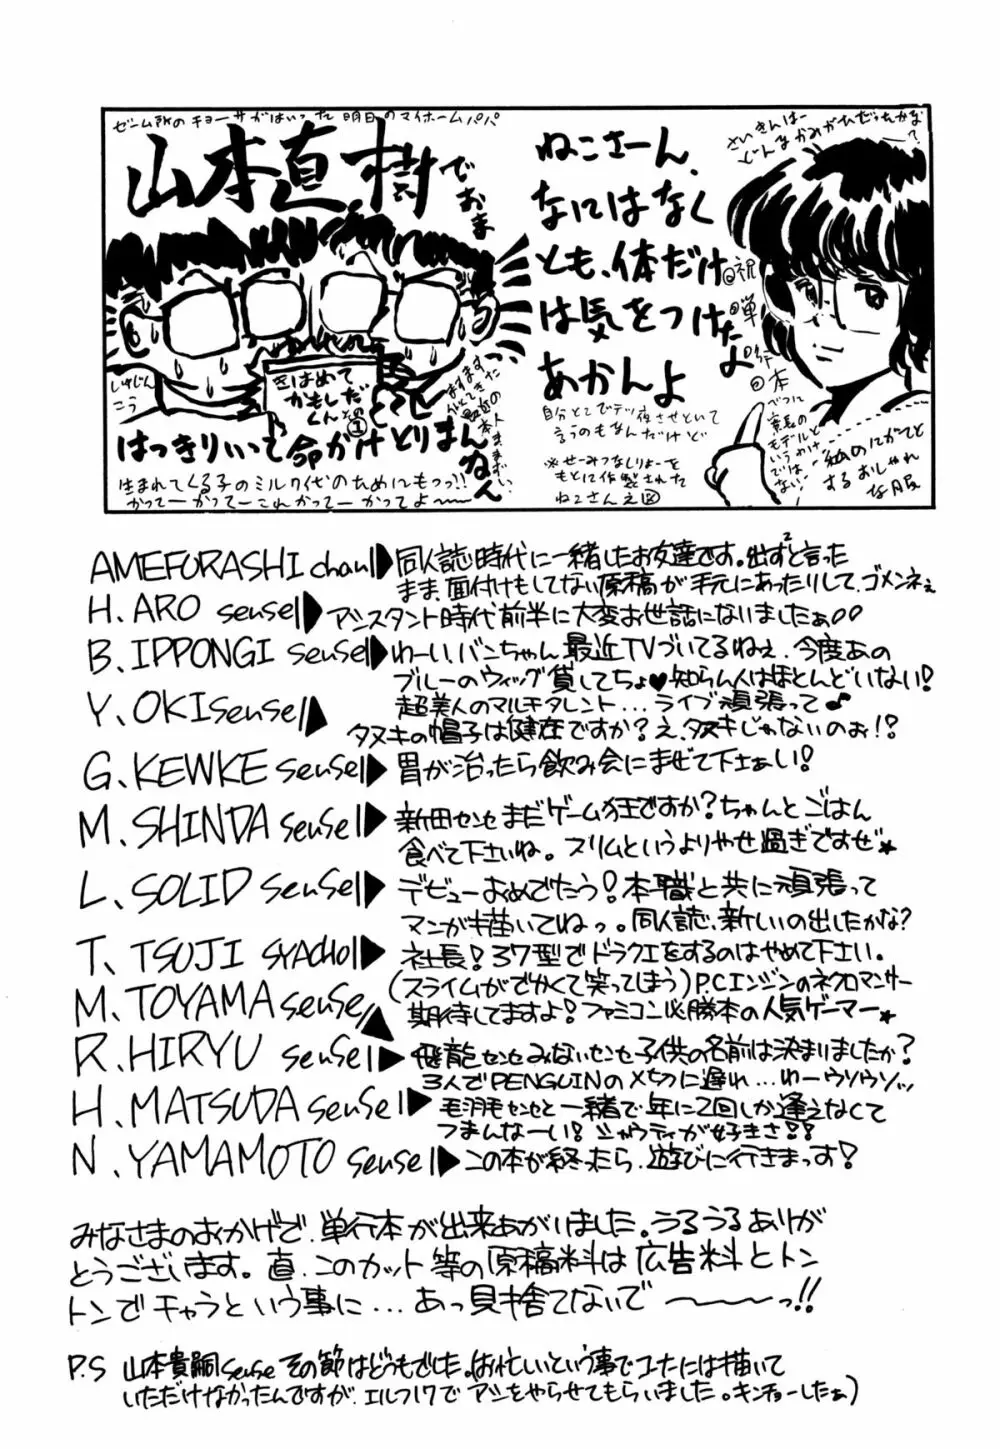 ゼーム所のチョーサがはいった明日のマイホームパパ
山本直樹でおま
さいきんはー
どんなかみがただったかな?
ねこさーん、
なにはなく
とも、体だけ
は気をつけたよ
あかんよ
@祝
@単
@行
@本
しゅじん
こう
はっきりいって命がけとりまんねん
生まれてくる子のミルク代のためにもっ!!
かってー かってー これかってー かってよ〜〜
自分とこでテツ夜させといて
言うのもなんだけど
※せーみつなしりょーを
もとに作製された
ねこさんえ図
べつに
京長の
モデルと
いうわけ
では
ない!
私のにがてと
するおしゃれ
な服
AMEFURASHI chan▶同人誌時代に一緒したお友達です。出ず²と言った
まま、面付けもしてない原稿が手元にあったりして、ゴメンネぇ
H. ARO sensei▶アシスタント時代前半に大変お世話にないましたぁ
B. IPPONGI sensei▶わーい、バンちゃん最近TVづいてるねぇ、今度あの
ブルーのウィッグ貸してちょ♥知らん人はほとんどいない!
超美人のマルチタレント…ライブ頑張って♪
Y. OKI sensei▶
タヌキの帽子は健在ですか?え、タヌキじゃないのぉ!?
G. KEWKE sensei▶胃が治ったら飲み会にまぜて下さぁい!
M. SHINDA sensei▶新田センセまだゲーム狂ですか?ちゃんとごはん
食べて下さいね。スリムというよりやせ過ぎですぜ★
L. SOLID sensei▶デビューおめでたう!本職と共に頑張って
マンガも描いてねっ。同人誌、新しいの出したかな?
T. TSUJI SYACHO▶社長!37型でドラクエをするのはやめて下さい。
(スライムがでかくて笑ってしまう)P.Cエンジンのネクロマンサー
M. TOYAMA sensei▶期待してますよ!ファミコン必勝本の人気ゲーマー★
R. HIRYU sensei▶飛龍センセみないセンセ子供の名前は決まりましたか?
3人でPENGUINの〆切に遅れ…わーウソウソッ
H. MATSUDA sensei▶毛羽毛センセと一緒で年に2回しか逢えなくて
つまんなーい!シャウティが好きさ!!
N. YAMAMOTO sensei▶この本が終ったら、遊びに行きまっす!
みなさまのおかげで、単行本が出来あがいました。うるうるありが
とうございます。直、このカット等の原稿料は広告料とトン
トンでチャラという事に…あっ見捨てないで〜〜っ!!
P.S 山本貴嗣sensei その節はどうもでした。(お忙しいという事でコナには描いて
いただけなかったんですが、エルフ17でアシをやらせてもらいました。キンチョーしたぁ)